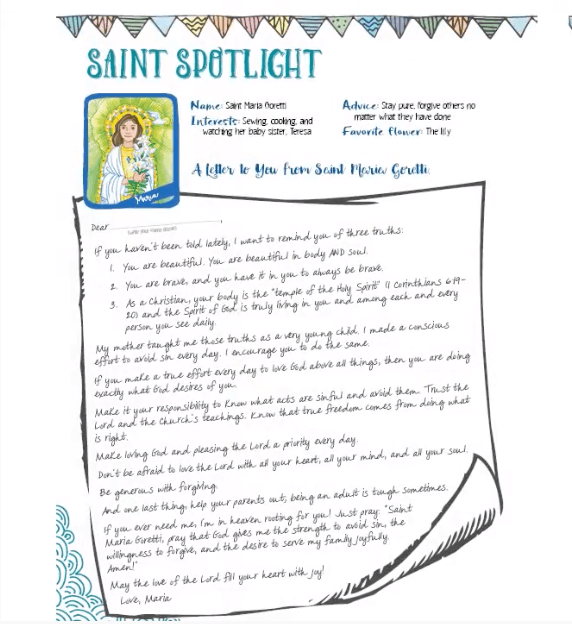 SAINT SPOTLIGHT
Name: Saint Maria Goretti
Interests: Sewing, cooking, and
watching her baby sister, Teresa
Advice: Stay pure, forgive others no
matter what they have done
Favorite flower: The lily
Maria
A Letter to You from Saint Maria Goretti
Dear
(write your name above)
If you haven't been told lately, I want to remind you of three truths:
1. You are beautiful. You are beautiful in body AND soul.
2. You are brave, and you have it in you to always be brave.
3. As a Christian, your body is the "temple of the Holy Spirit" (1 Corinthians 6:19-
20) and the Spirit of God is truly living in you and among each and every
person you see daily.
My mother taught me those truths as a very young child. I made a conscious
effort to avoid sin every day. I encourage you to do the same.
If you make a true effort every day to love God above all things, then you are doing
exactly what God desires of you.
Make it your responsibility to know what acts are sinful and avoid them. Trust the
Lord and the Church's teachings. Know that true freedom comes from doing what
is right.
Make loving God and pleasing the Lord a priority every day.
Don't be afraid to love the Lord with all your heart, all your mind, and all your soul.
Be generous with forgiving.
And one last thing, help your parents out, being an adult is tough sometimes.
If you ever need me, I'm in heaven rooting for you! Just pray: "Saint
Maria Goretti, pray that God gives me the strength to avoid sin, the
willingness to forgive, and the desire to serve my family joyfully.
Amen!"
May the love of the Lord fill your heart with joy!
Love, Maria